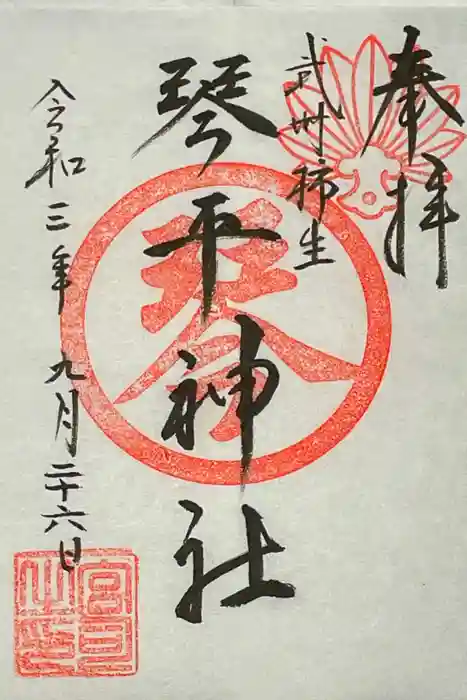 奉拝
武州柿生
琴平神社
令和三年九月二十六日
宮司之印